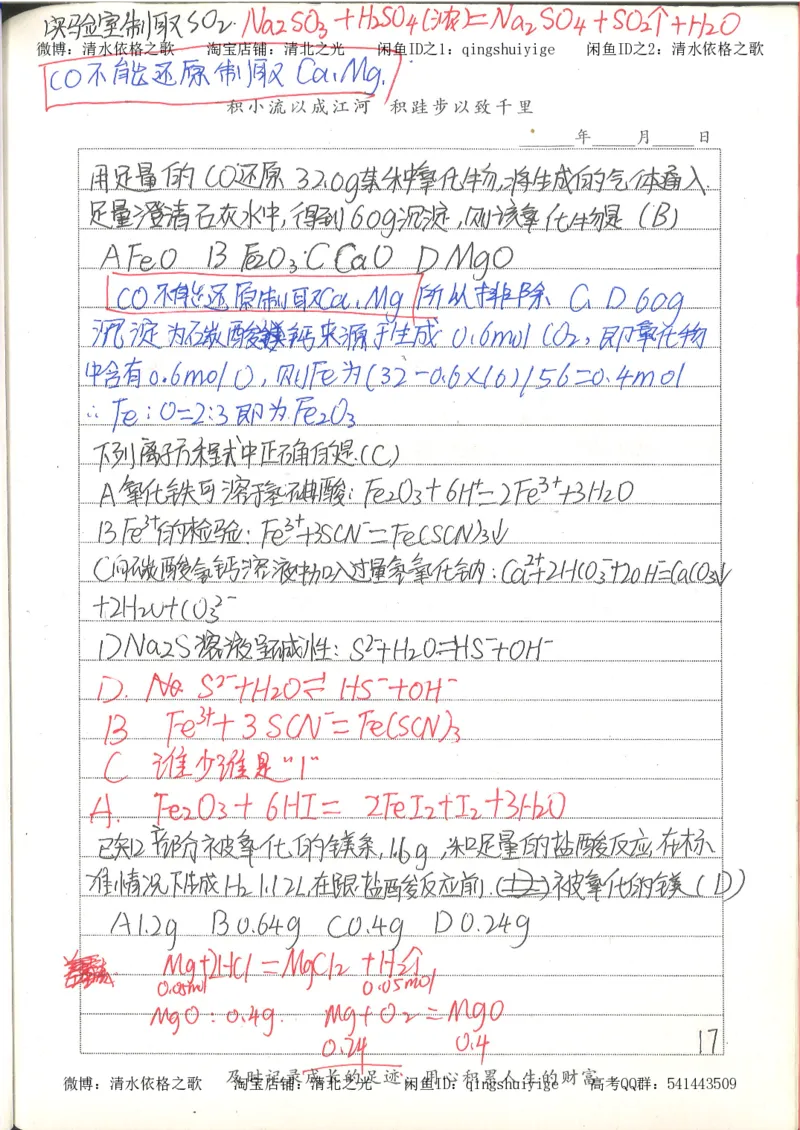 实验室制取SO2. Na2SO3+H2SO4(浓)=Na2SO4+SO2↑+H2O
微博：清水依格之歌 淘宝店铺：清北之光 闲鱼ID之1：qingshuiyige 闲鱼ID之2：清水依格之歌
CO不能还原制取Ca、Mg.
积小流以成江河 积跬步以致千里
年 月 日
用足量的CO还原 32.0g某种氧化物，将生成的气体通入
足量澄清石灰水中，得到60g沉淀，则该氧化物是（B）
A FeO B Fe2O3 C CaO D MgO
CO不能还原制取Ca、Mg 所以排除 C、D 60g
沉淀为碳酸钙来源于生成 0.6mol CO2，即氧化物
中含有0.6mol O，则Fe为(32-0.6×16)/56=0.4mol
∴Fe:O=2:3即为Fe2O3
下列离子方程式中正确的是.(C)
A 氧化铁可溶于氢碘酸：Fe2O3+6H+=2Fe3++3H2O
B Fe3+的检验：Fe3++3SCN-=Fe(SCN)3↓
C向碳酸氢钙溶液中加入过量氢氧化钠：Ca2++2HCO3-+2OH-=CaCO3↓
+2H2O+CO32-
D Na2S溶液呈碱性：S2-+H2O⇌HS-+OH-
D. Na S2-+H2O⇌HS-+OH-
B Fe3++3SCN-=Fe(SCN)3
C 谁少谁是“1”
A. Fe2O3+6HI=2FeI2+I2+3H2O
已知2部分被氧化的镁条，1.6g，和足量的盐酸反应，在标
准情况下生成H2 1.12L，在跟盐酸反应前，被氧化的镁（D）
A 1.2g B 0.64g C 0.4g D 0.24g
Mg+2HCl=MgCl2+H2↑
0.05mol 0.05mol
MgO：0.4g. Mg+O2=MgO
0.24 0.4
17
及时记录成长的足迹 用心积累人生的财富
微博：清水依格之歌 淘宝店铺：清北之光 闲鱼ID：qingshuiyige 高考QQ群：541443509